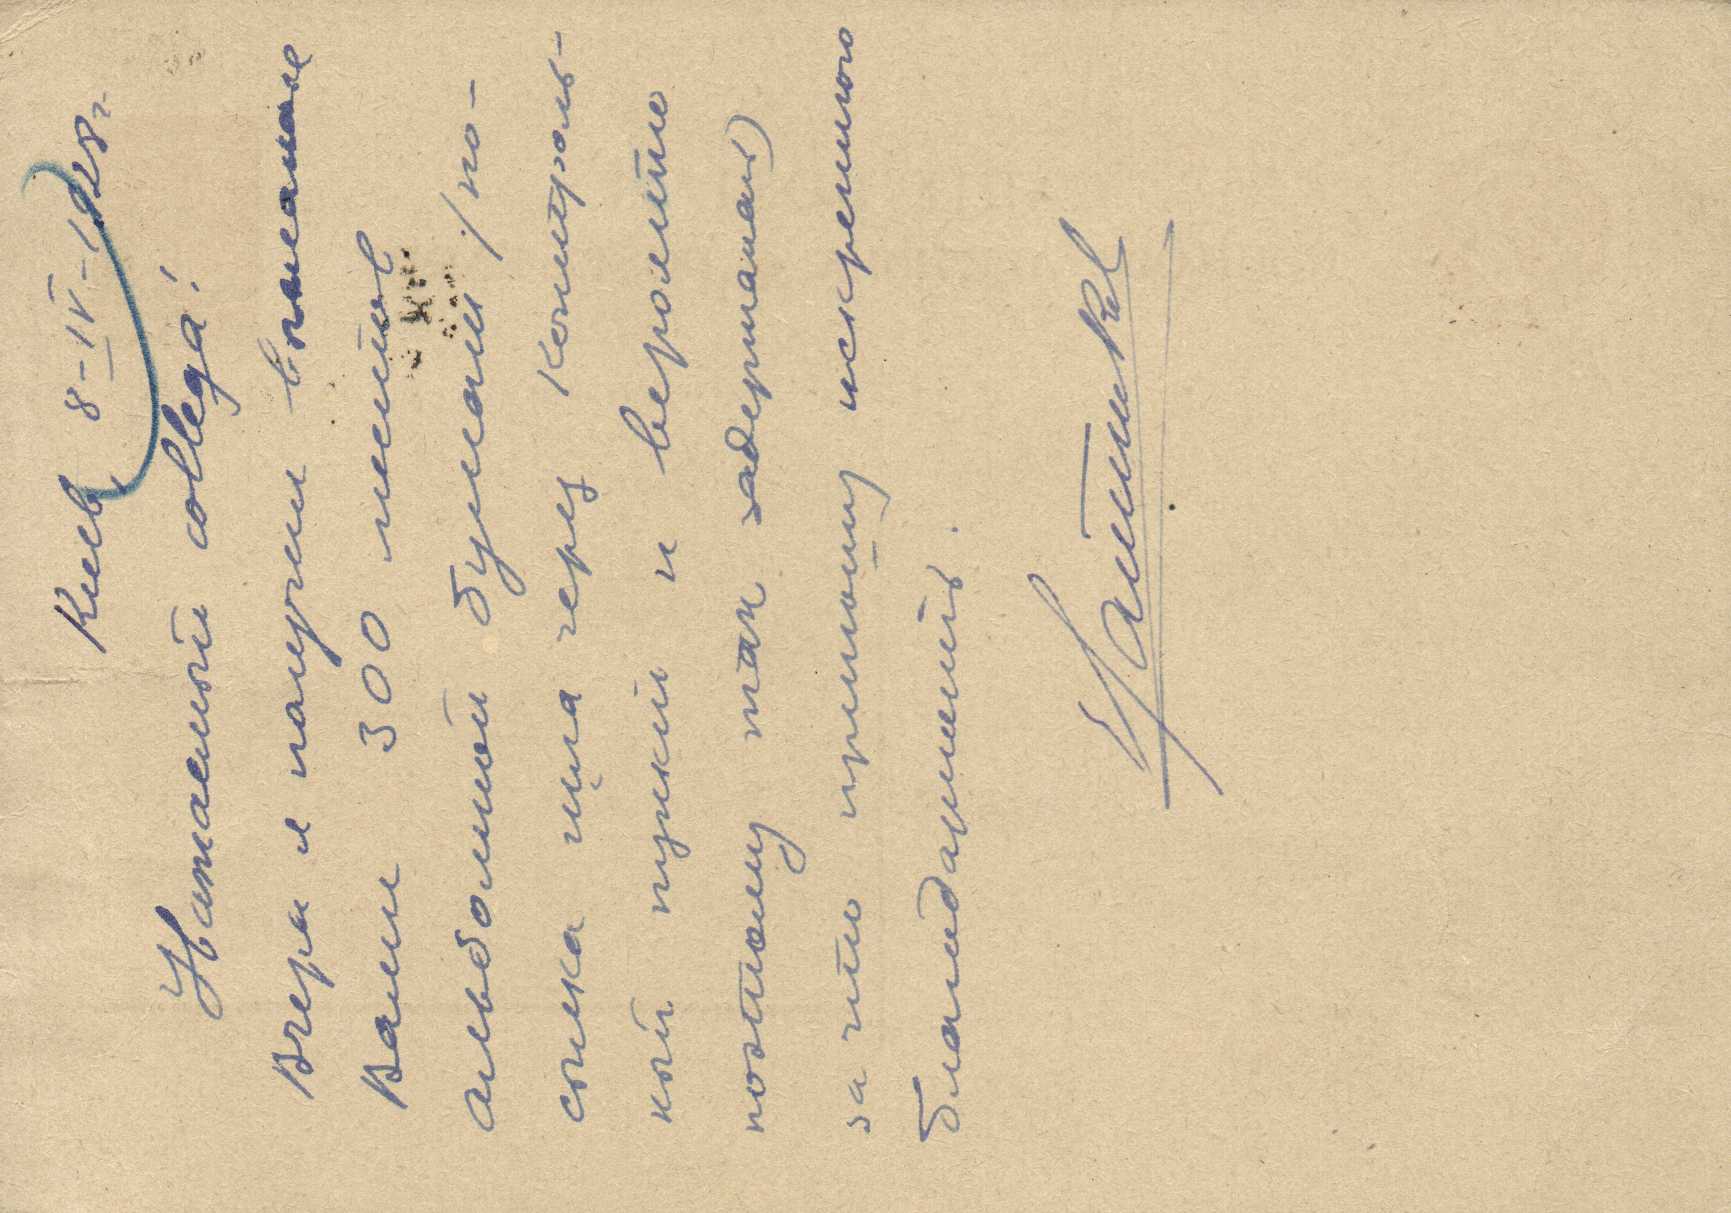 Киев, 8-IV-1928г.
Уважаемый collega!
Вчера я получил высланные
Вами 300 листов
альбомной бумаги /по-
сылка шла через контроль-
ный пункт и вероятно
поэтому так задержалась)
за что приношу искреннюю
благодарность.